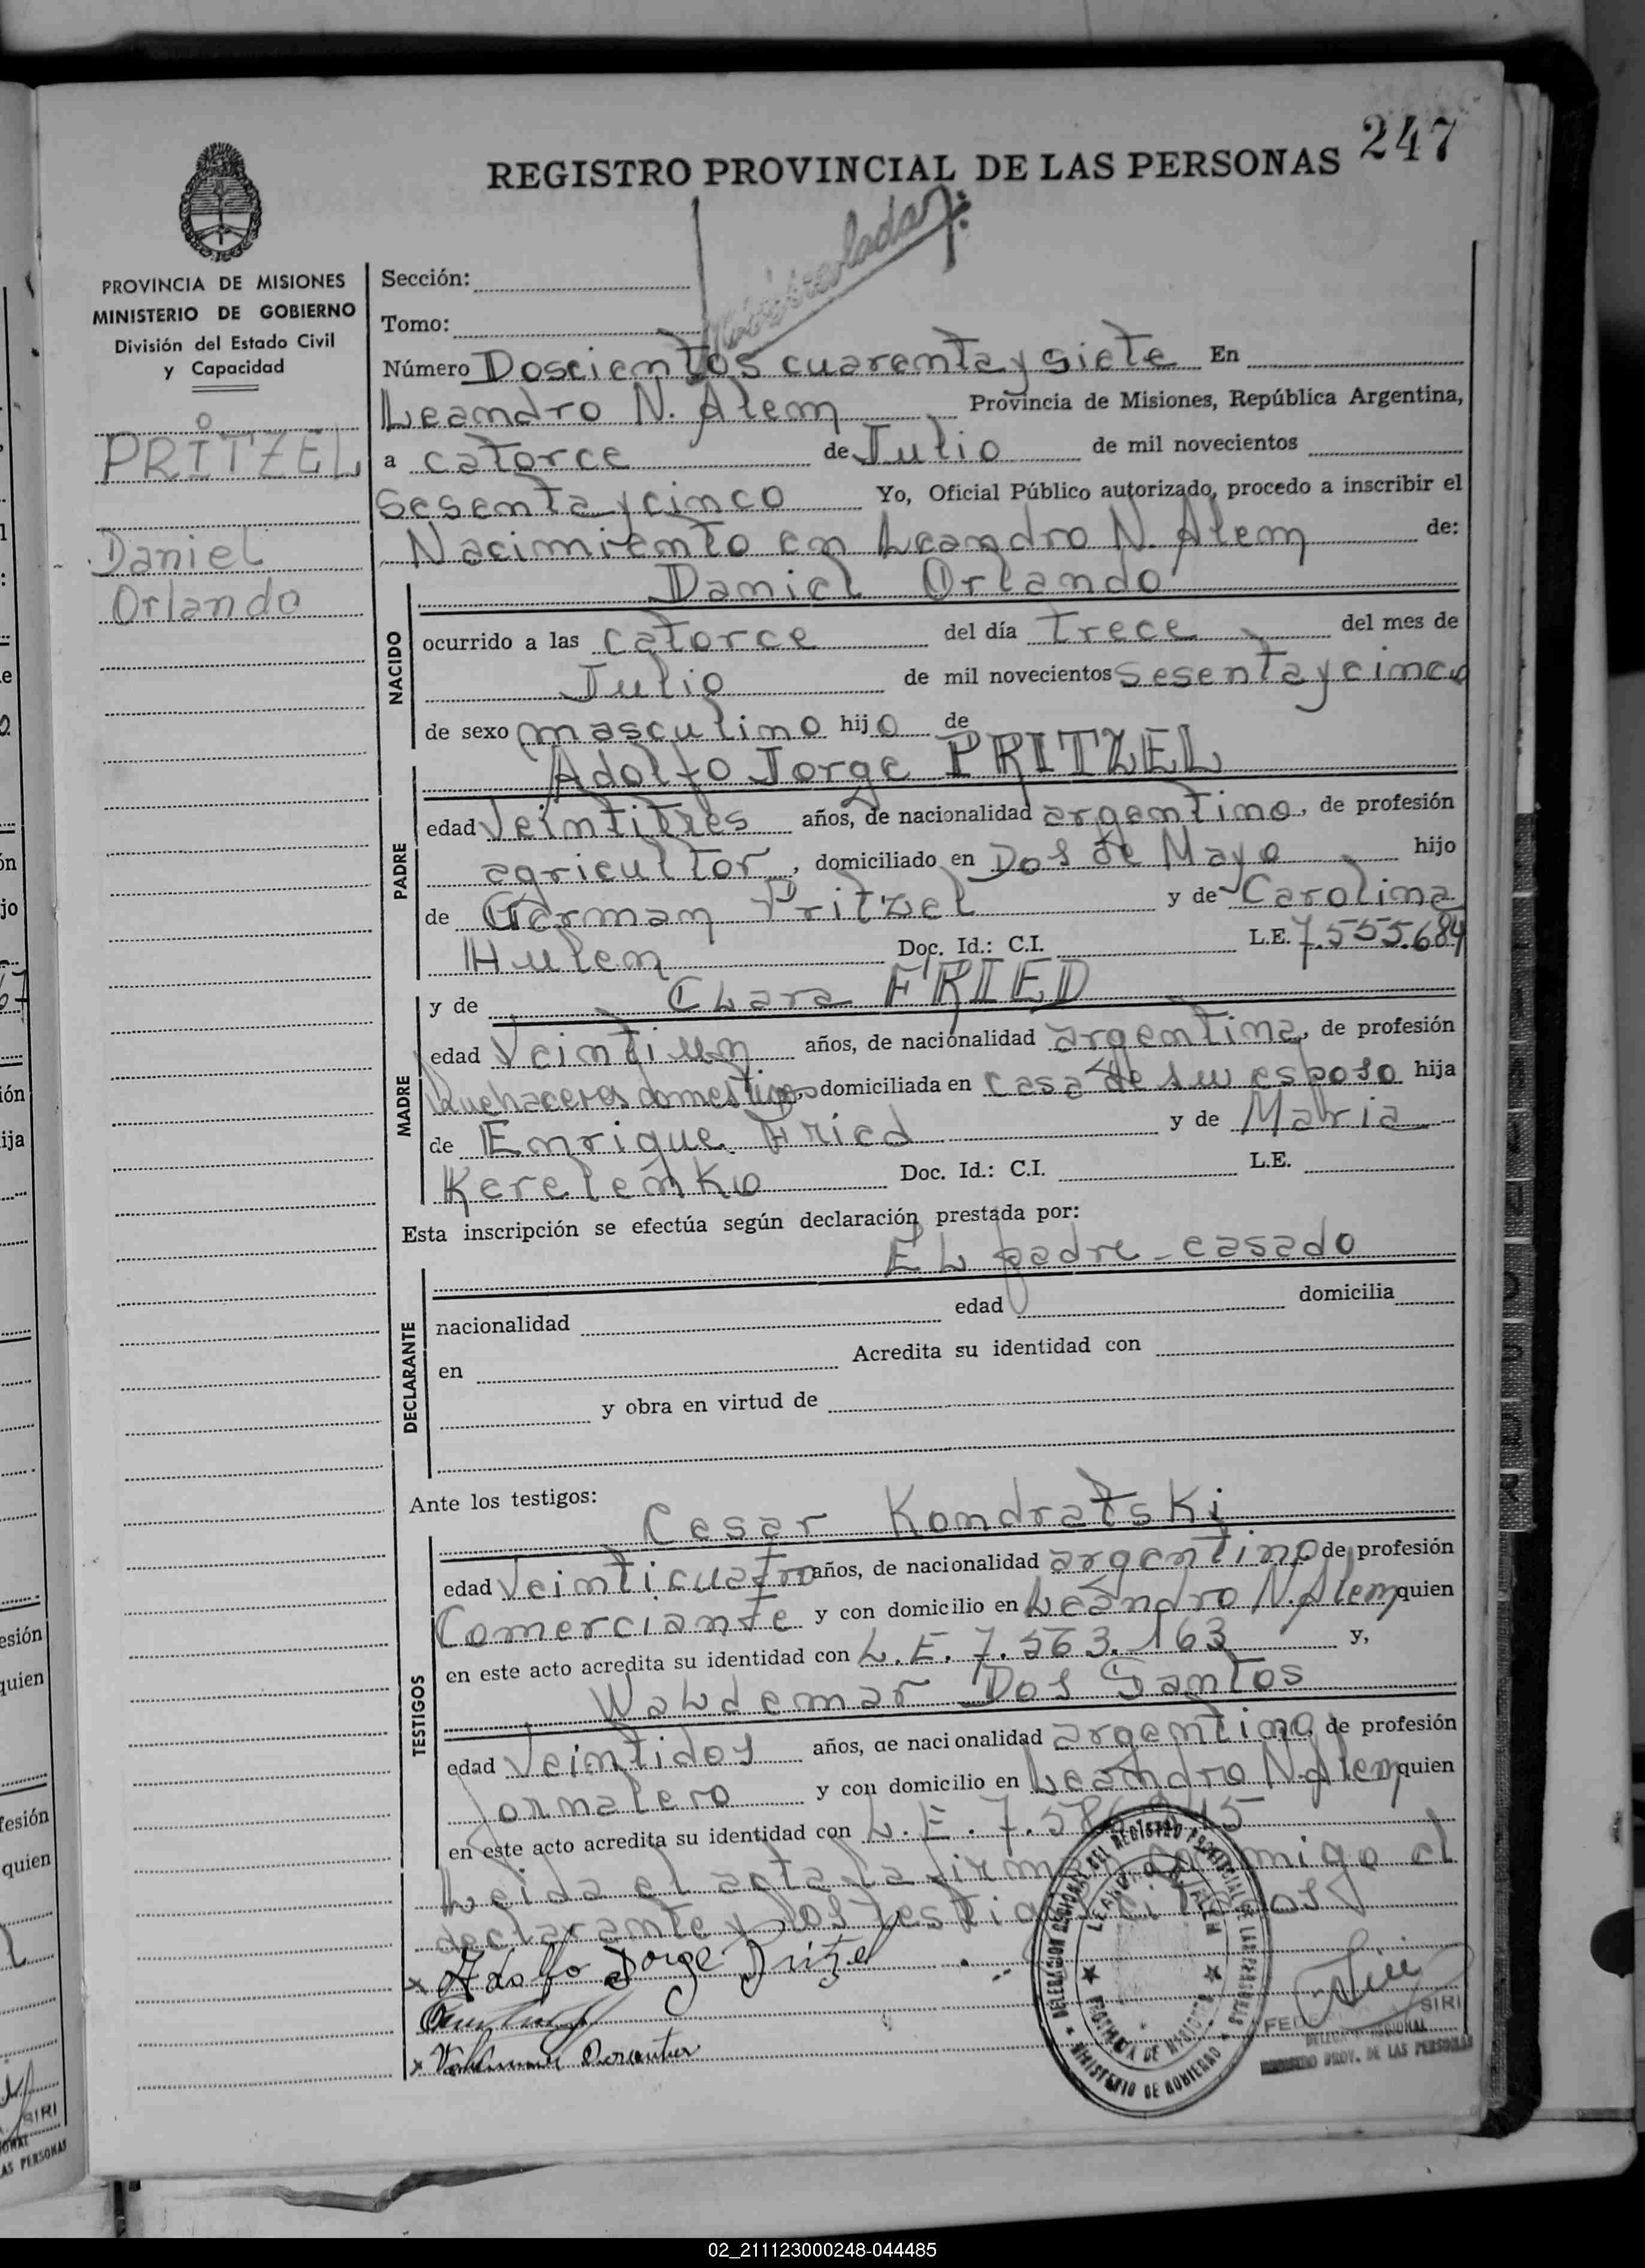 247
REGISTRO PROVINCIAL DE LAS PERSONAS
PROVINCIA DE MISIONES
MINISTERIO DE GOBIERNO
División del Estado Civil
y Capacidad
PRITZEL
Daniel
Orlando
Sección:
Tomo:
Número Doscientos cuarenta y siete En
Leandro N. Alem Provincia de Misiones, República Argentina,
a catorce de Julio de mil novecientos
Sesenta y cinco Yo, Oficial Público autorizado, procedo a inscribir el
Nacimiento en Leandro N. Alem de:
Daniel Orlando
NACIDO
ocurrido a las catorce del día trece del mes de
Julio de mil novecientos Sesenta y cinco
de sexo masculino hijo de
Adolfo Jorge PRITZEL
PADRE
edad Veintitres años, de nacionalidad argentino, de profesión
agricultor, domiciliado en Dos de Mayo hijo
de German Pritzel y de Carolina
Hulem Doc. Id.: C.I. L.E. 7.555.684
MADRE
y de Clara FRIED
edad Veintiun años, de nacionalidad argentina, de profesión
Quehaceres domesticos, domiciliada en casa de su esposo hija
de Enrique Fried y de Maria
Kerelenko Doc. Id.: C.I. L.E.
Esta inscripción se efectúa según declaración prestada por:
EL padre - casado
DECLARANTE
nacionalidad edad domicilia
en Acredita su identidad con
y obra en virtud de
Ante los testigos:
Cesar Kondratski
TESTIGOS
edad Veinticuatro años, de nacionalidad argentino de profesión
Comerciante y con domicilio en Leandro N. Alem quien
en este acto acredita su identidad con L.E. 7.563.163 y,
Waldemar Dos Santos
edad Veintidos años, de nacionalidad argentino, de profesión
Jornalero y con domicilio en Leandro N. Alem quien
en este acto acredita su identidad con L.E.
Leida el acta la firman conmigo el
declarante y los testigos citados
x Adolfo Jorge Pritzel
DELEGACION REGIONAL DEL REGISTRO PROVINCIAL DE LAS PERSONAS
LEANDRO N. ALEM
PROVINCIA DE MISIONES
MINISTERIO DE GOBIERNO
SIRI
REGISTRO PROV. DE LAS PERSONAS
02_211123000248-044485